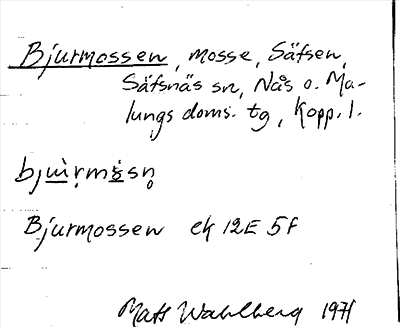 Bjurmossen, mosse, Säfsen,
Säfsnäs sn, Nås o. Ma-
lungs doms. tg, Kopp. l.
Bjurmossen ek 12E 5f
Matts Wahlberg 1971